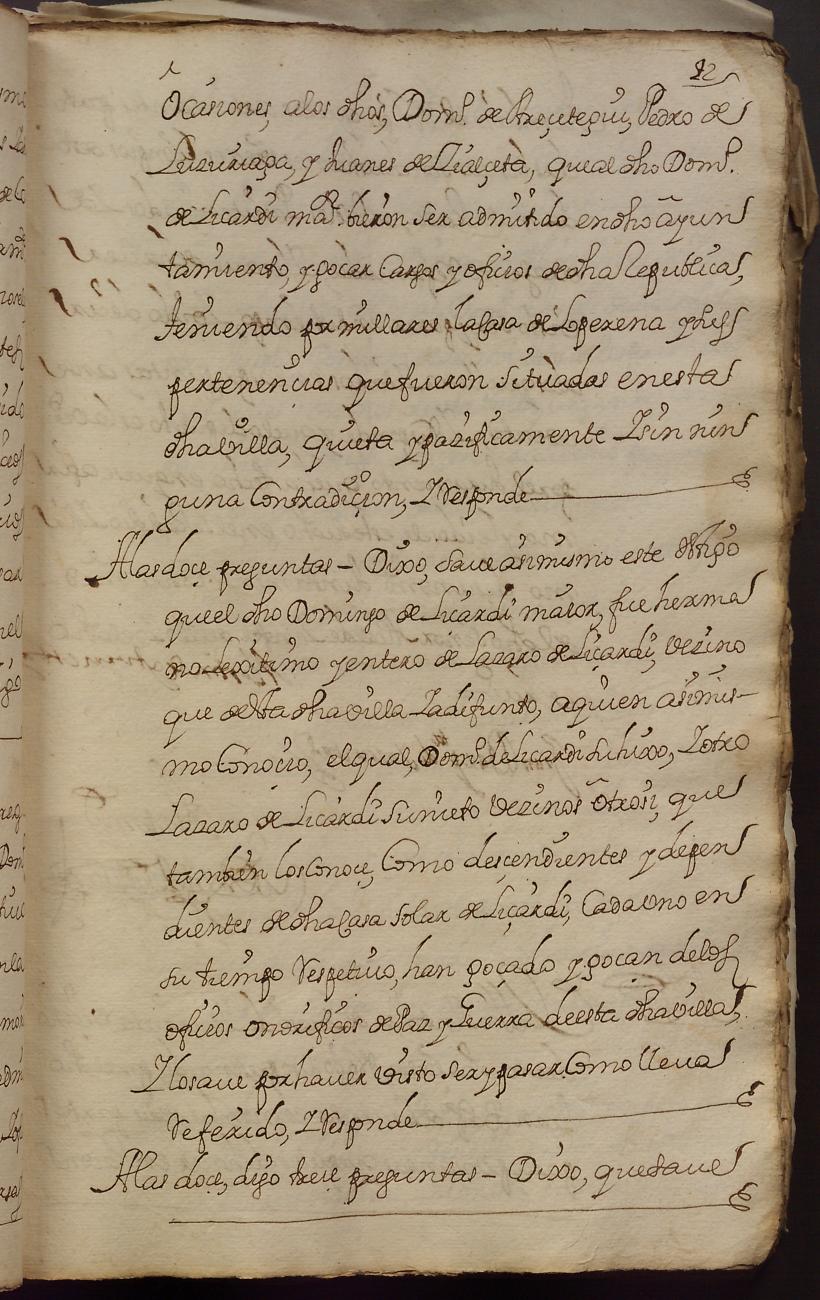 12
Ocasiones, a los dhos, Domo. de Areçuteguí, Pedro de
Luzuriaga, y Juanes de Lialçeta, que al dho Domo.
de Licardi maor. bieron ser admitido en dho ayun
tamiento, y goçar Cargos y oficios de dha Republica,
teniendo por millares la Casa de Loperena y sus
pertenencias que fueron Situadas en esta
dha villa, quieta y pazificamente Y sin nin
guna Contradiçion, Y Responde
A las doce preguntas - Dixo, save asimismo este testigo
que el dho Domingo de Licardi maior, fue herma
no lexitimo y entero de Lazaro de Licardi, vezino
que desta dha villa Ya difunto, a quien asimis-
mo Conocio, el qual, Domo. de Licardi su hixo, Y otro
Lazaro de Licardi su nieto vezinos otrosi, que
tambien los Conoce, Como descendientes y depen
dientes de dha Casa solar de Liçardi, Cada uno en
su tiempo Respetivo, han goçado y goçan de los
oficios onorificos de Paz y Guerra de esta dha villa,
Y lo save por haver visto ser y pasar Como lleva
Referido, Y Responde
A las doce, digo trece preguntas - Dixo, que save